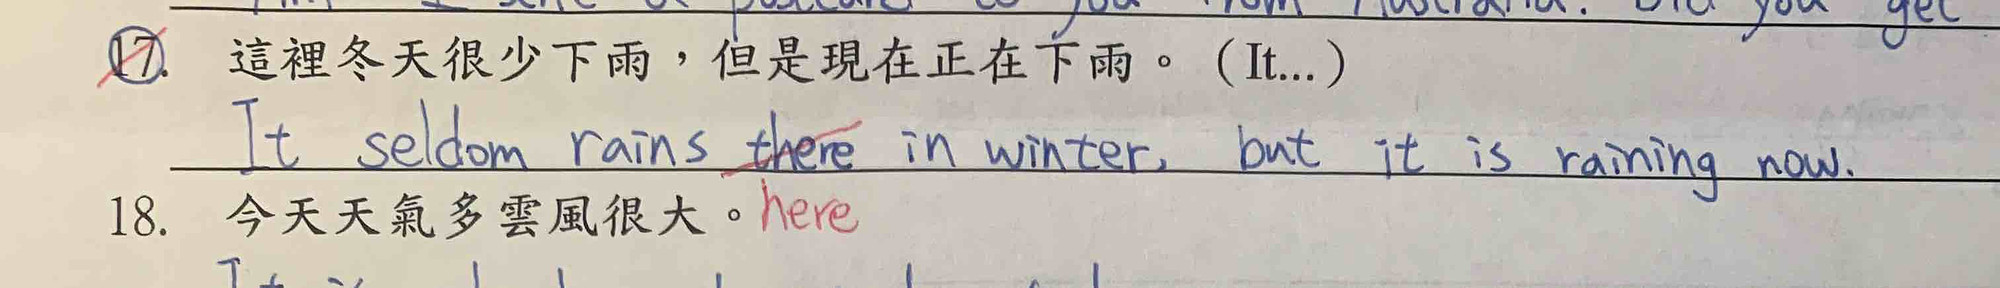 postcard to you from Australia. Did you get
17. 這裡冬天很少下雨，但是現在正在下雨。（It...）
It seldom rains there in winter, but it is raining now.
here
18. 今天天氣多雲風很大。